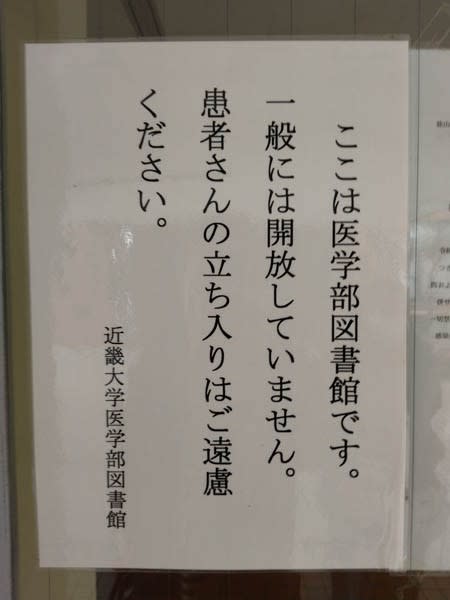 ここは医学部図書館です。
一般には開放していません。
患者さんの立ち入りはご遠慮
ください。
近畿大学医学部図書館